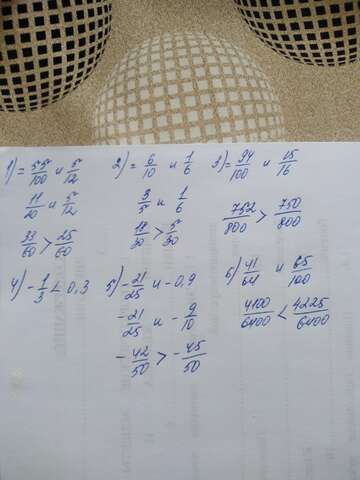 1) = 55/100 и 5/12
11/20 и 5/12
33/60 > 25/60
2) = 6/10 и 1/6
3/5 и 1/6
18/30 > 5/30
3) = 94/100 и 15/16
752/800 > 750/800
4) - 1/3 < 0,3
5) - 21/25 и - 0,9
- 21/25 и - 9/10
- 42/50 > - 45/50
6) 41/64 и 65/100
4100/6400 < 4225/6400